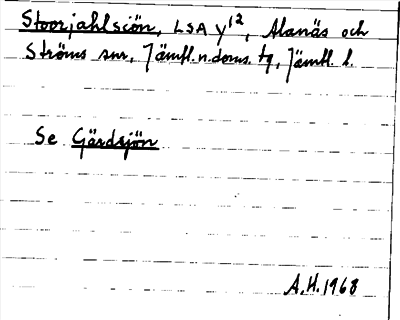 Stoorjahlsciön, LSA Y¹², Alanäs och
Ströms snr, Jämtl. n. doms. tg, Jämtl. l.
Se Gärdsjön
A.H. 1968